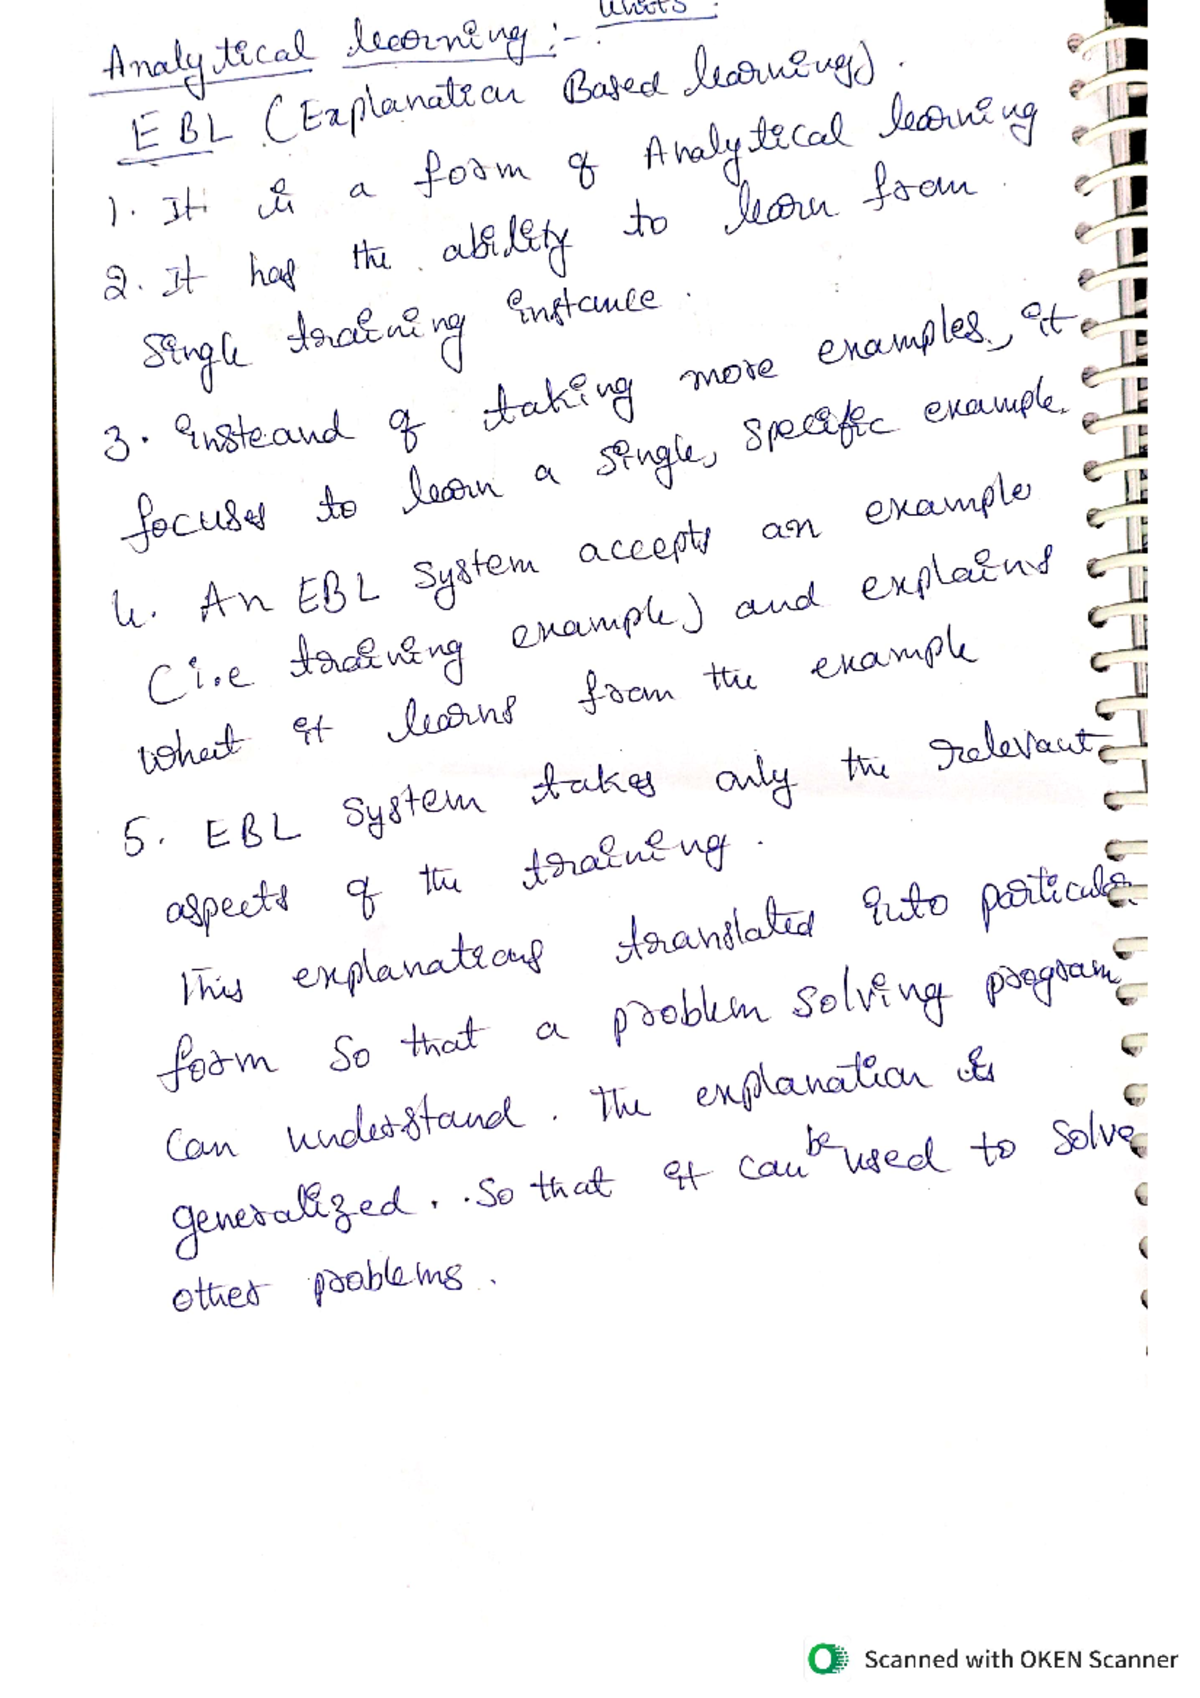 Analytical learning :-
EBL (Explanation Based learning).
1. It is a form of Analytical learning
2. It has the ability to learn from
Single training instance.
3. insteand of taking more examples, it
focuses to learn a single, specific example.
4. An EBL System accepts an example
(i.e training example) and explains
what it learns from the example
5. EBL System takes only the relevant
aspects of the training.
This explanations translated into particular
form so that a problem solving program
can understand. The explanation is
generalized. So that it can be used to solve
other problems.
Scanned with OKEN Scanner